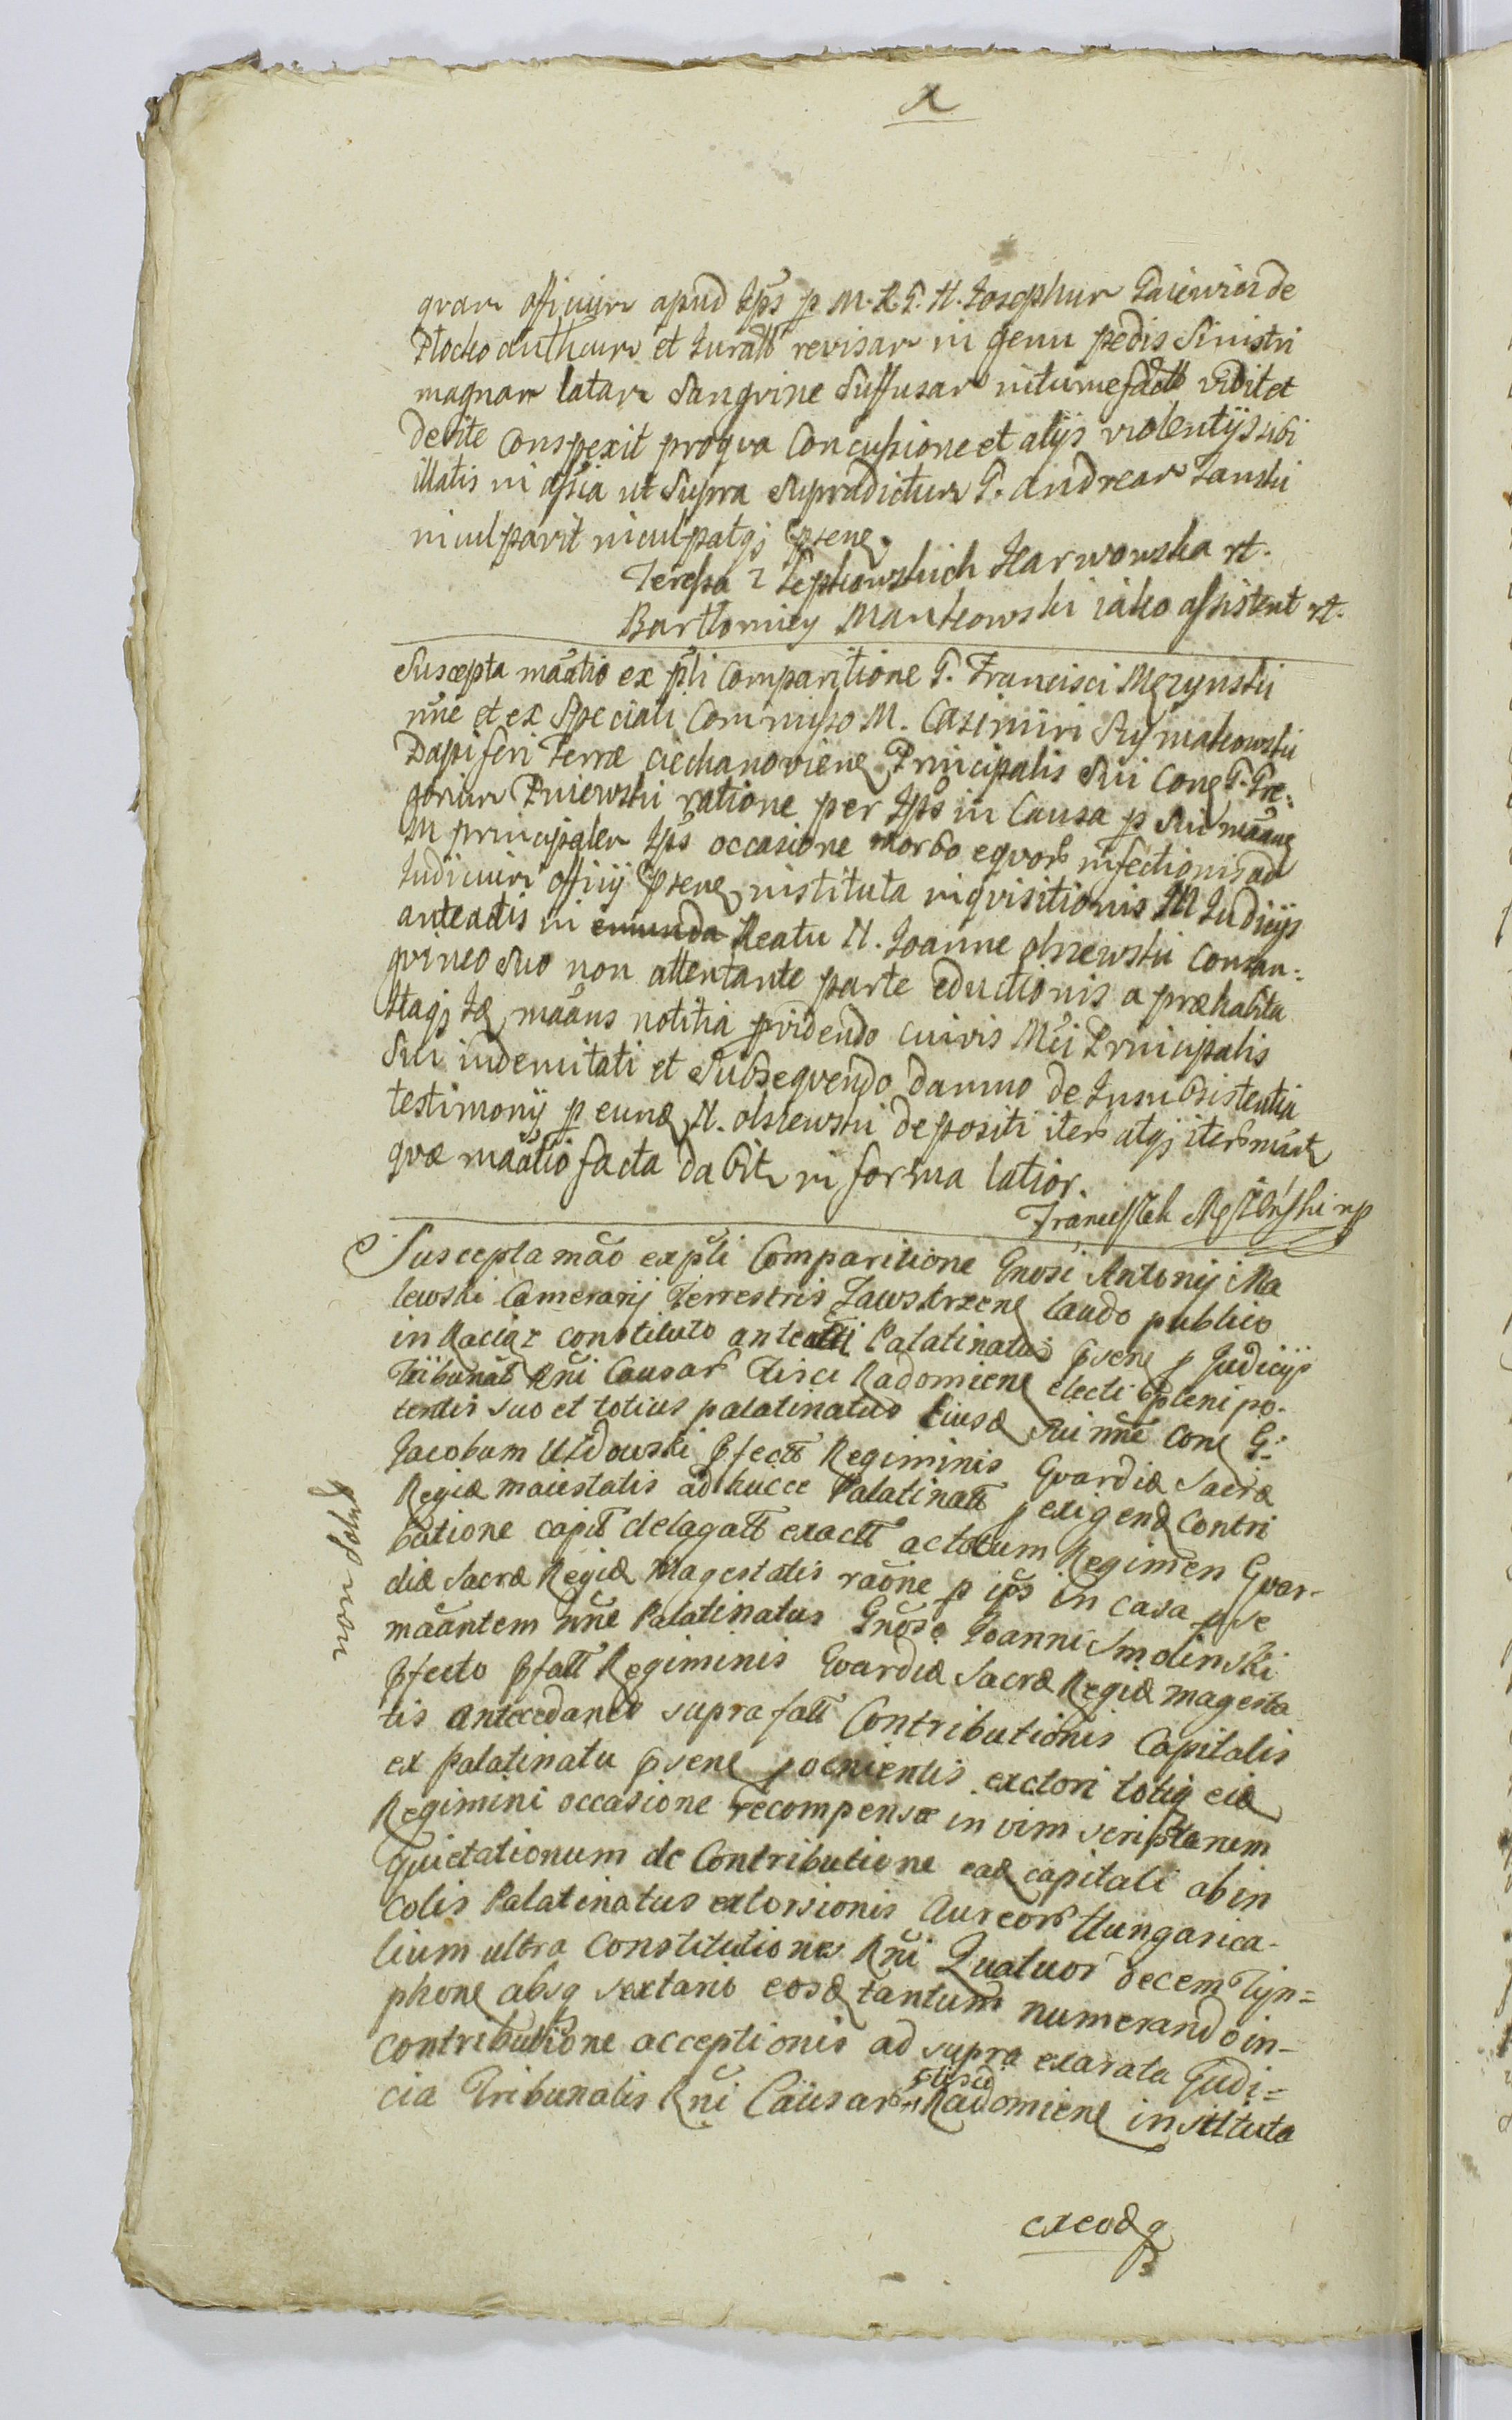 qvam officium apud Jps p M. R. G. N. Josephum Gaiewicz de
Plocko authcum et Juratt revisam in genu pedis Sinistri
magnam latam Sangvine Suffusam intumefactt vidit et
debite conspexit pro qva Concussione et alijs violentijs sibi
illatis in assia ut Supra Supradictum G. Andream Janski
inculpavit inculpatqj Psene
Teressa z Sepkowskich Karwowska rt.
Bartlomiey Mankowski iako assistent rt.
Suscepta maatio ex psti Comparitione G. Francisci Mezynski
nne et ex Speciali Commisso M. Casimiri Rymakowski
Dapiferi Terræ Ciechanoviene Principalis Sui Cone G. Gre-
gorium Pniewski ratione per Jps in Causa p Sui maane
M principalem Jps occasione morbo eqvorb infectionis ad
Judicium Officij Psene instituta inqvisitionis M Judicijs
anteactis in emunda Reatu N. Joanne Olszewski Consan=
gvineo Suo non attentante parte eductionis a præhabita
Itaqj maans notitia pvidendo cuivis Mci Principalis
Sui indemnitati et Subseqvendo damno de Insubsistentia
testimonij p eund N. Olszewski depositi iterb atqj iterb
qvæ maatio facta dabit in forma latior.
Franciszek Mezenski mp
Suscepta mao ex psti Comparitione Gnosi Antonij Ma
lewski Camerarij Terrestris Zawskrzene laudo publico
in Raciaz constituto anteatti Palatinatus Psene p Judicijs
Tribunalt Rni Causarb Fisci Radomiene electi Plenipo-
tentis suo et totius palatinatus Eiusd Sui nne Cone G.
Jacobum Utdowski Pfectt Regiminis Gvardiæ Sacræ
Regiæ maiestatis ad hucce Palatinatt p exigend Contri
butione capit delagatt exactt ac totum Regimen Gvar-
diæ Sacræ Regiæ Magestatis raone p ips in casa p se
maantem nne Palatinatus Gnoso Joanni Smolinski
Pfecto Pfatt Regiminis Gvardiæ Sacræ Regiæ magesta
tis Antecedaneo suprafatt Contributionis Capitalis
ex palatinatu Psene poenientis exctori totiq eid
Regimini occasione recompensæ in vim scriptarum
Quietationum de Contributione ead capitali ab in
colis Palatinatus extorsionis Aureorb Hungarica-
lium ultra Constitutiones Rni Quatuor decem Tijn=
phone absq sextario eosd tantum numerando in-
contributione acceptionis ad supra exarata Judi=
cia Tribunalis Rni Causarb Fisci Radomiene instituta
ex eodq